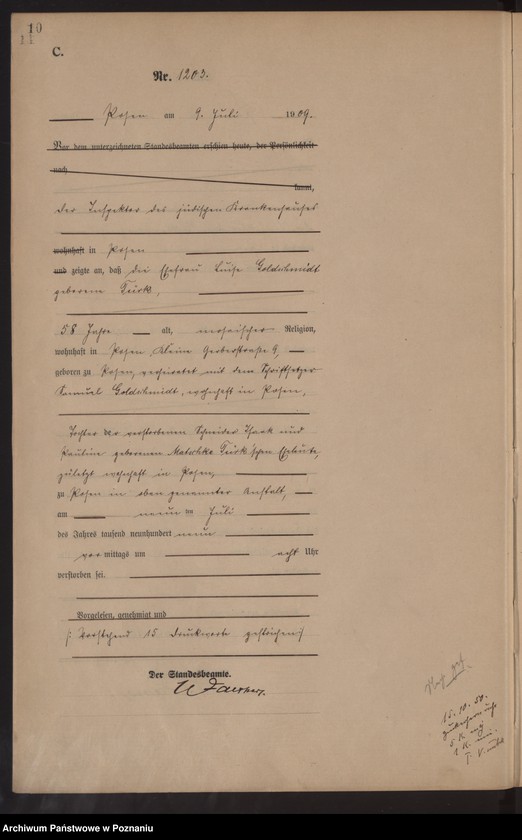 10
C.
Nr. 1203.
Posen am 9. Juli 1909.
Vor dem unterzeichneten Standesbeamten erschien heute, der Persönlichkeit
nach
kannt,
der Inspektor des jüdischen Krankenhauses
wohnhaft in Posen
und zeigte an, daß die Ehefrau Luise Goldschmidt
geborene Türk,
58 Jahre alt, mosaischer Religion,
wohnhaft in Posen Kleine Gerberstraße 9,
geboren zu Posen, verheiratet mit dem Schriftsetzer
Samuel Goldschmidt, wohnhaft in Posen,
Tochter der verstorbenen Schneider Isaak und
Pauline geborenen Türk'schen Eheleute,
zuletzt wohnhaft in Posen,
zu Posen in oben genannter Anstalt,
am neunten Juli
des Jahres tausend neunhundert neun
vormittags um acht Uhr
verstorben sei.
Vorgelesen, genehmigt und
/: Vorstehend 15 Druckworte gestrichen :/
Der Standesbeamte.
15. 10. 50.
Archiwum Państwowe w Poznaniu